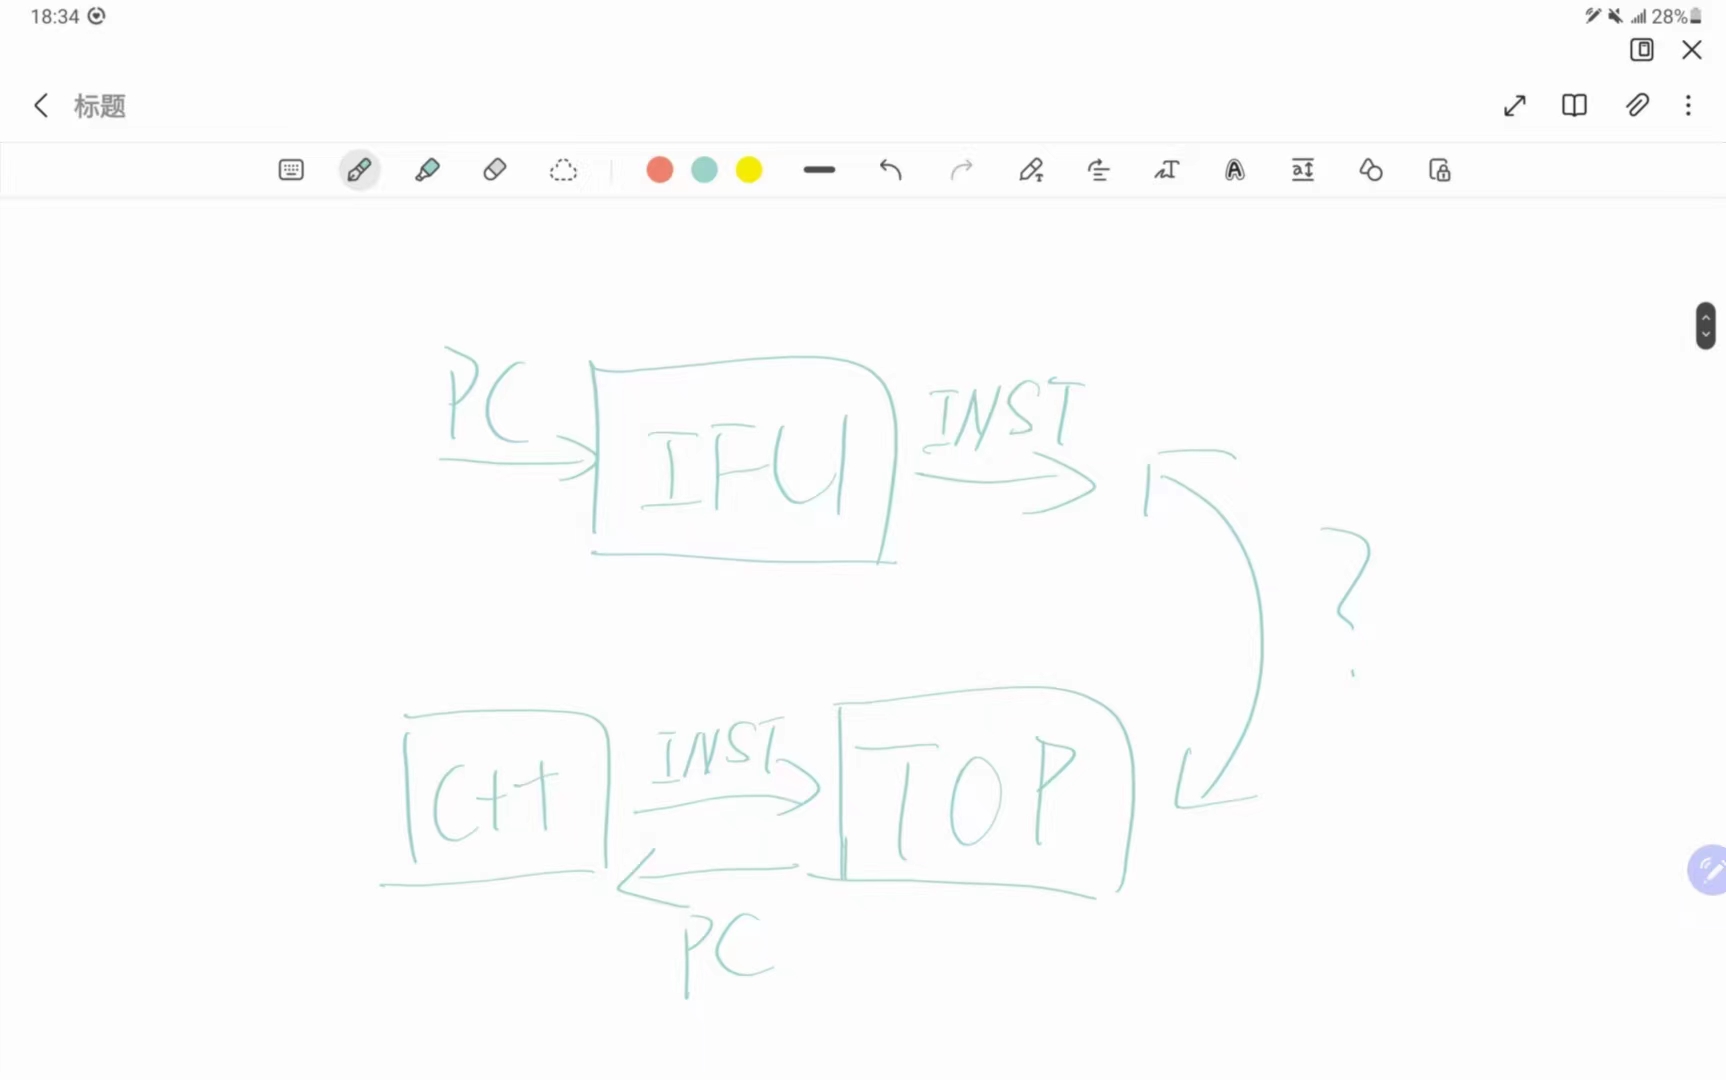 18:34
28%
标题
PC
IFU
INST
?
C++
INST
TOP
PC